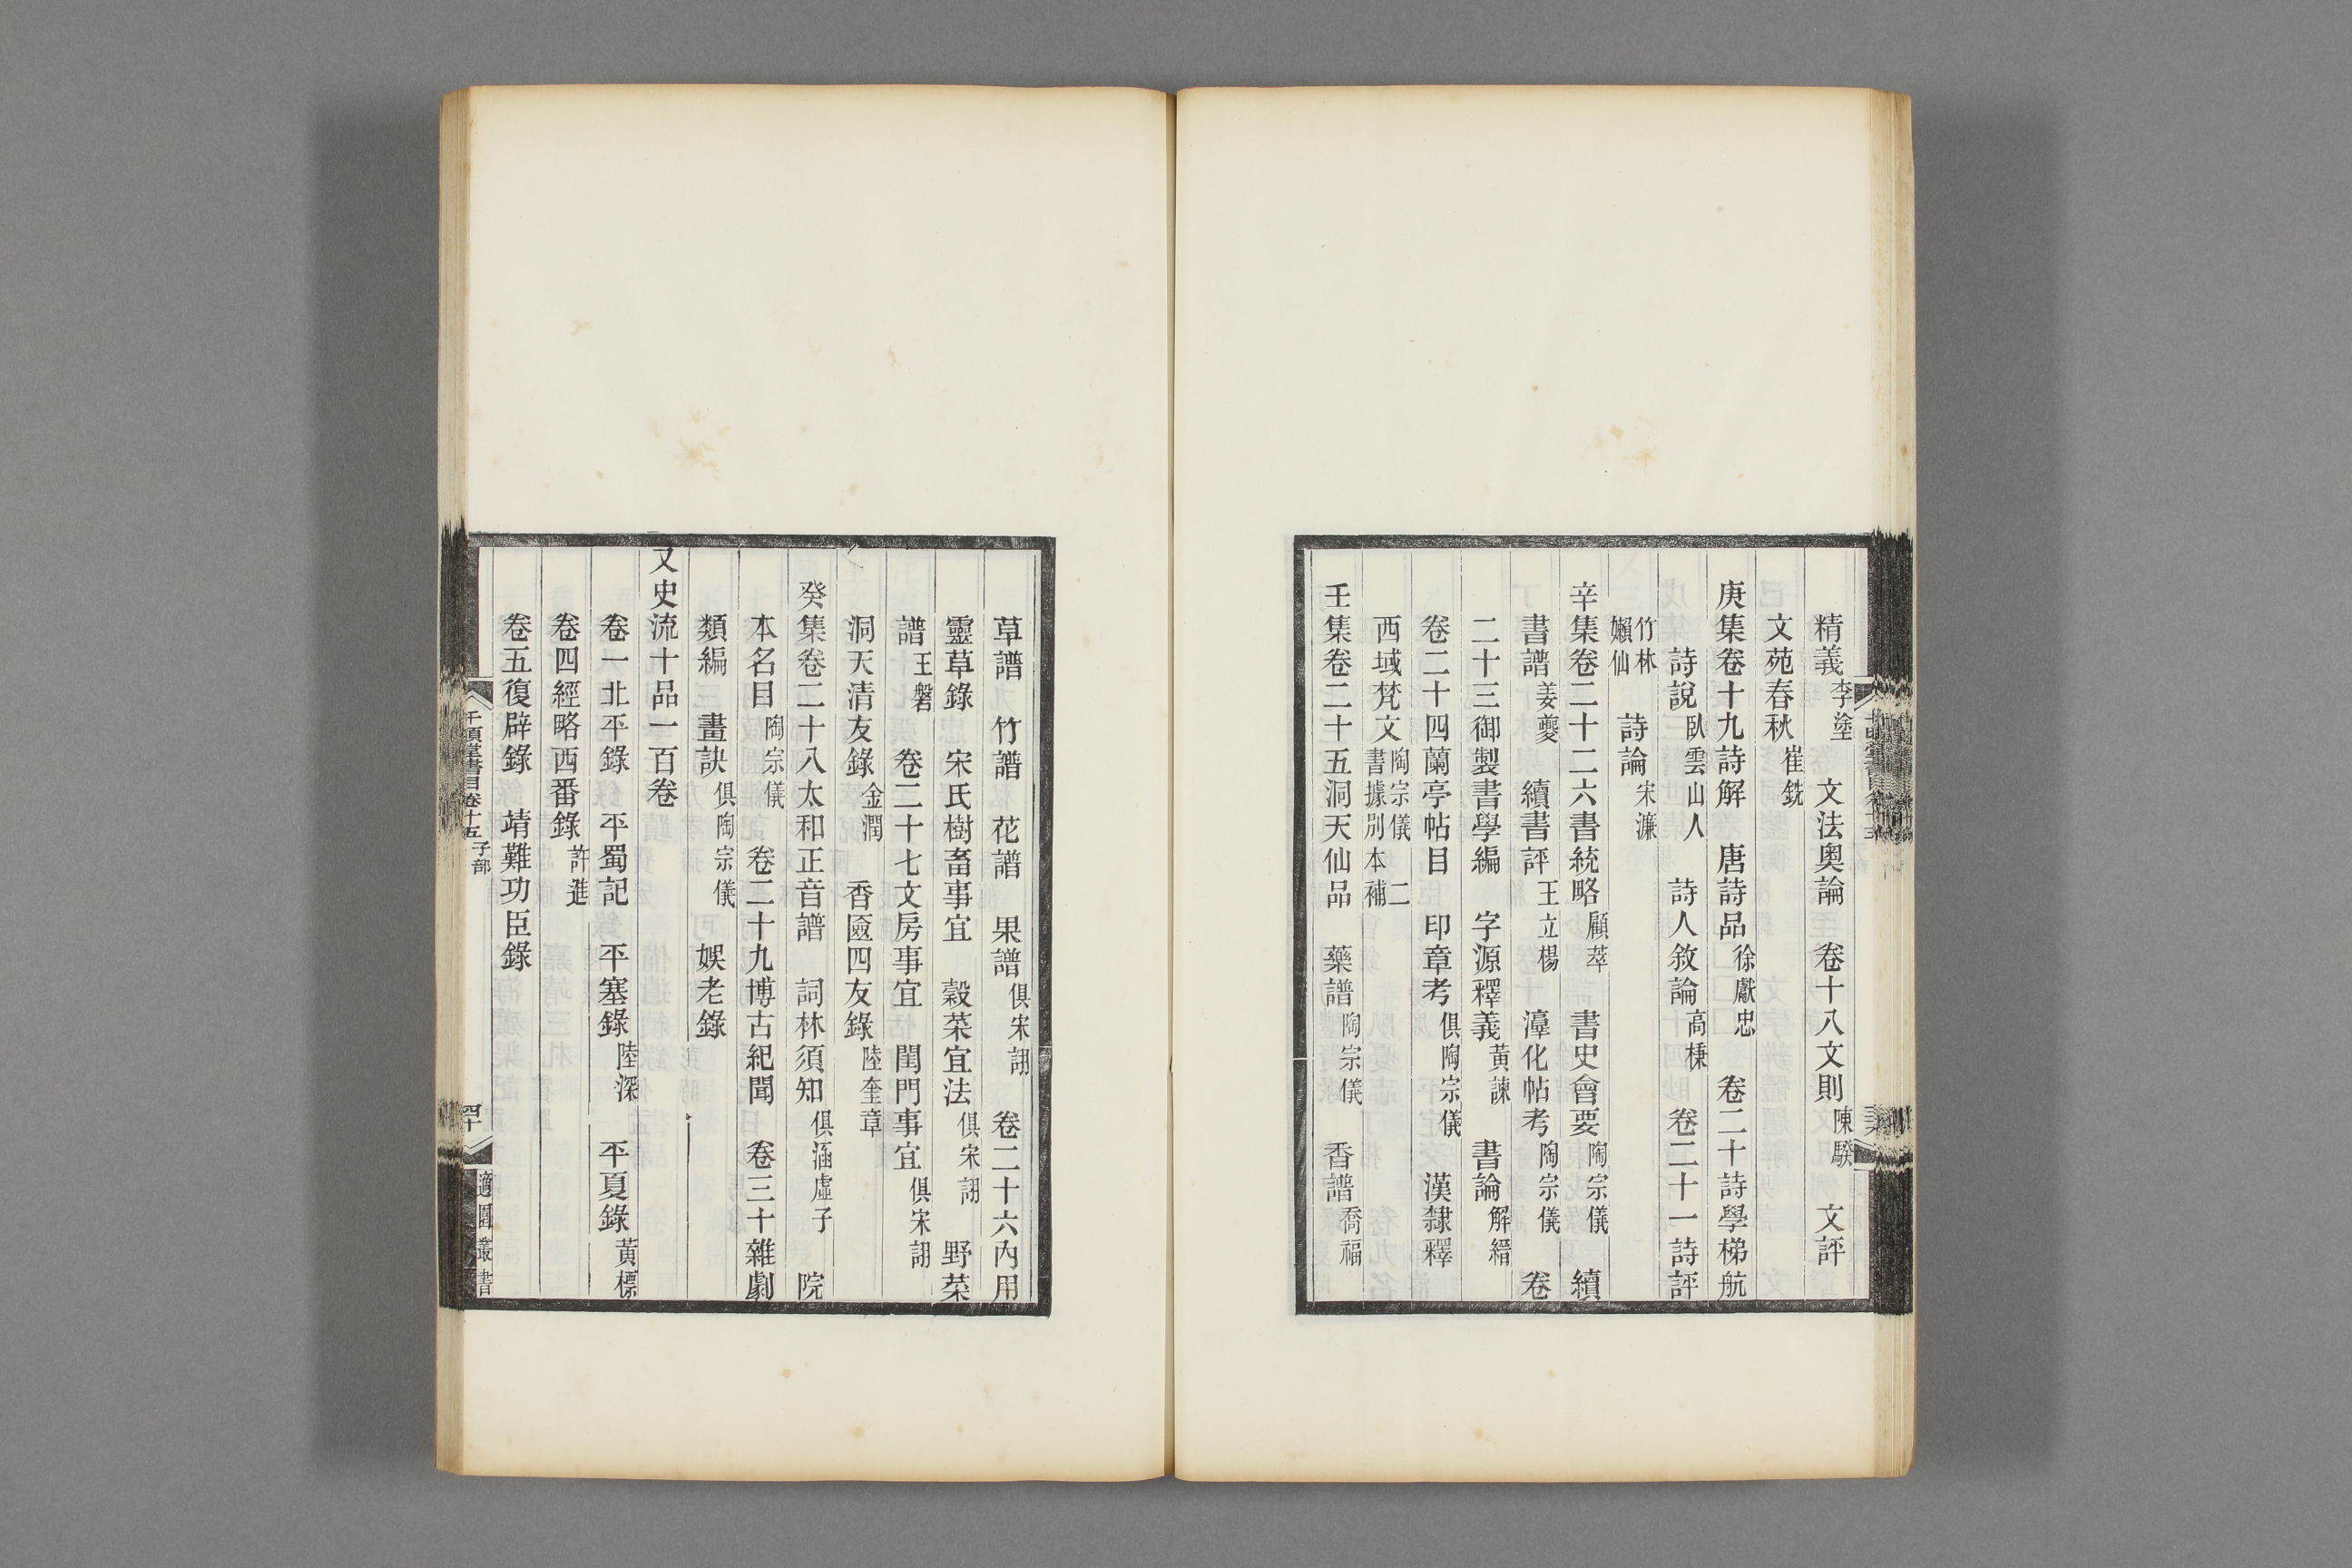 精義李塗　文法奧論　卷十八文則陳騤　文評
文苑春秋崔銑
庚集卷十九詩解　唐詩品徐獻忠　卷二十詩學梯航
詩說臥雲山人　詩人敘論高棅　卷二十一詩評
竹林懶仙　詩論宋濂
辛集卷二十二六書統略顧萃　書史會要陶宗儀　續
書譜姜夔　續書評王立楊　漳化帖考陶宗儀　卷
二十三御製書學編　字源釋義黃諫　書論解縉
卷二十四蘭亭帖目　印章考俱陶宗儀　漢隸釋
西域梵文陶宗儀　二書據別本補
壬集卷二十五洞天仙品　藥譜陶宗儀　香譜喬福
草譜　竹譜　花譜　果譜俱宋詡　卷二十六內用
靈草錄　宋氏樹畜事宜　穀菜宜法俱宋詡　野菜
譜王磐　卷二十七文房事宜　閨門事宜俱宋詡
洞天清友錄金潤　香匳四友錄陸奎章
癸集卷二十八太和正音譜　詞林須知俱涵虛子　院
本名目陶宗儀　卷二十九博古紀聞　卷三十雜劇
類編　畫訣俱陶宗儀　娛老錄
又史流十品一百卷
卷一北平錄　平蜀記　平塞錄陸深　平夏錄黃標
卷四經略西番錄許進
卷五復辟錄　靖難功臣錄
千頃堂書目卷十五　子部
四十
適園叢書